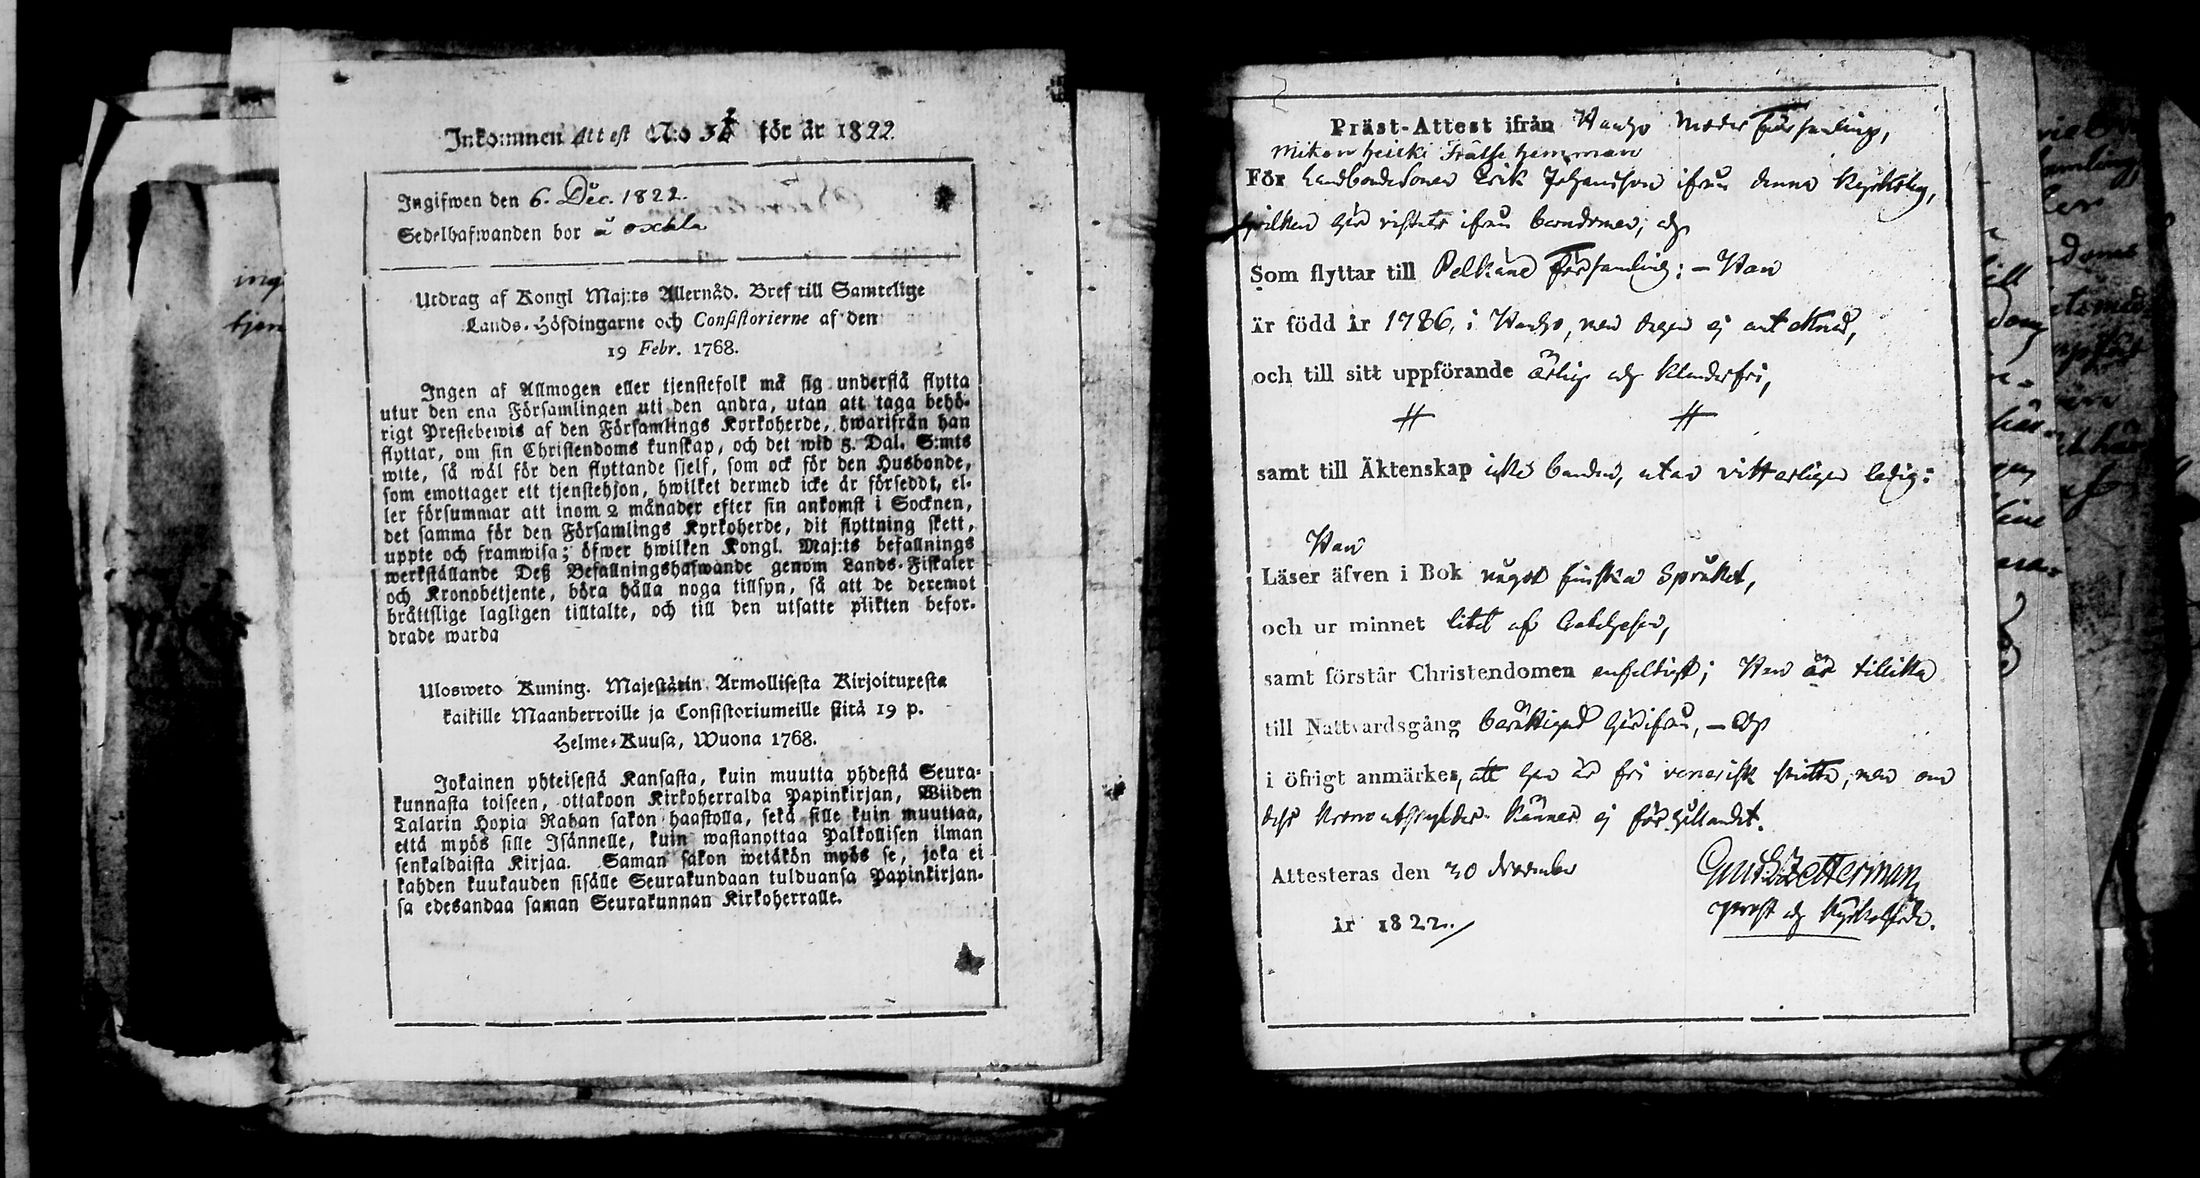 Inkommen Attest N:o 38 för år 1822
Ingifwen den 6. Dec. 1822.
Sedelhafwanden bor å
Utdrag af Kongl Maj:ts Allernåd. Bref till Samtelige
Lands-Höfdingarne och Consistorierne af den
19 Febr. 1768.
Ingen af Allmogen eller tjenstefolk må sig understå flytta
utur den ena Församlingen uti den andra, utan att taga behö-
rigt Prestebewis af den Församlings Kyrkoherde, hwarifrån han
flyttar, om sin Christendoms kunskap, och det wid 5. Dal. S:mts
wite, så wäl för den flyttande sielf, som ock för den Husbonde,
som emottager ett tjenstehjon, hwilket dermed icke är försedt, el-
ler försummar att inom 2 månader efter sin ankomst i Socknen,
det samma för den Församlings Kyrkoherde, dit flyttning skett,
uppte och framwisa; öfwer hwilken Kongl. Maj:ts befallnings
werkställande Deß Befallningshafwande genom Lands-Fiskaler
och Kronobetjente, böra hålla noga tillsyn, så att de deremot
bråttslige lagligen tilltalte, och till den utsatte plikten befor-
drade warda
Ulosweto Kuning. Majestätin Armollisesta Kirjoituxesta
kaikille Maanherroille ja Consistoriumeille siitä 19 p.
Helme-Kuusa, Wuona 1768.
Jokainen yhteisestä Kansasta, kuin muutta yhdestä Seura-
kunnasta toiseen, ottakoon Kirkoherralda Papinkirjan, Wiiden
Talarin Hopia Rahan sakon haastolla, sekä sille kuin muuttaa,
että myös sille Isännelle, kuin wastanottaa Palkollisen ilman
senkaldaista Kirjaa. Saman sakon wetäkön myös se, joka ei
kahden kuukauden sisälle Seurakundaan tulduansa Papinkirjan-
sa edesandaa saman Seurakunnan Kirkoherralle.
Präst-Attest ifrån Hauho Moder Församling,
Mikon heicki Frälse hemman
För Landbondesonen Erik Johansson ifrån denna Kyrkoby,
hvilken här vistats ifrån barndomen, och
Som flyttar till Pelkäne Församling: – Han
är född år 1786, i Hauho, men dagen ej antecknad,
och till sitt uppförande ärlig och klanderfri,
# #
samt till Äktenskap icke bunden, utan vitterligen ledig:
Han
Läser äfven i Bok något finska Språket,
och ur minnet litet af Catechesen,
samt förstår Christendomen enfeldigt; Han är tillika
till Nattvardsgång berättigad härifrån, – och
i öfrigt anmärkes, att han är fri venerisk smitta, men om
dess Kronoutskylder känner ej förhållandet.
Attesteras den 30 November
år 1822.
Zetterman
Prost och Kyrkoherde.